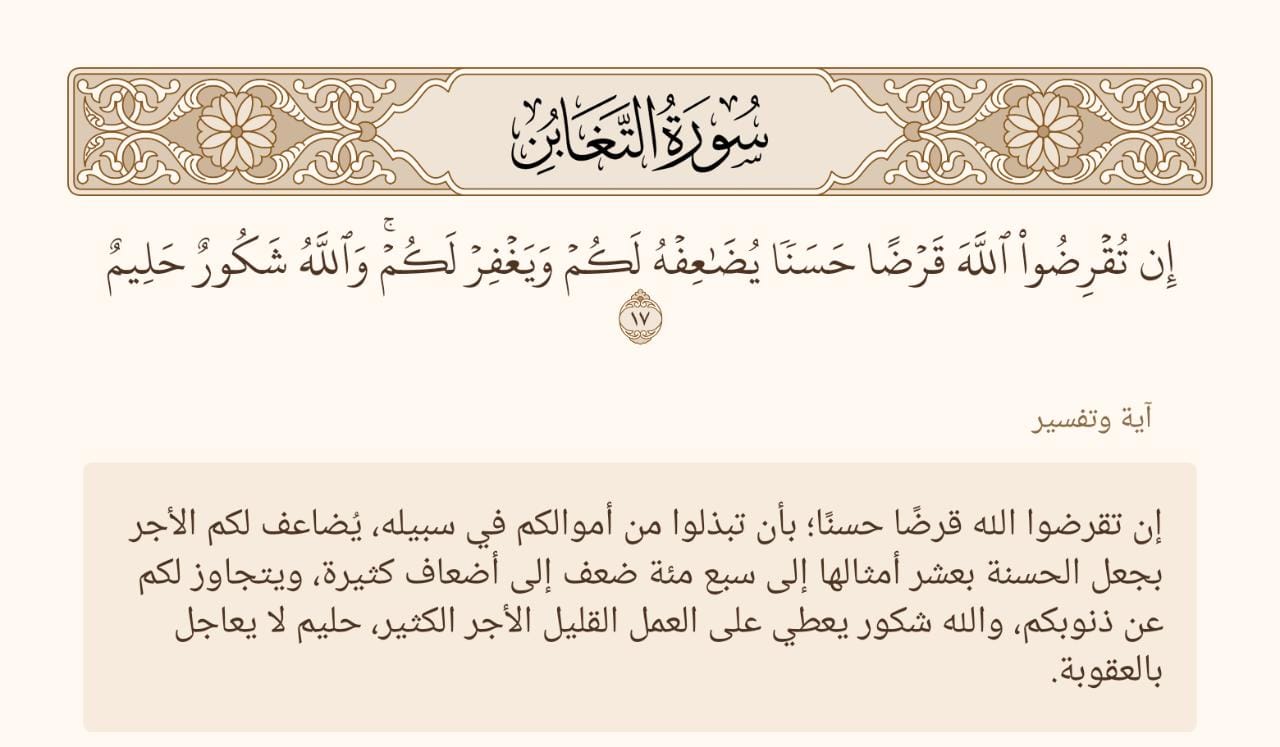 سُورَةُ التَّغَابُنِ
إِن تُقْرِضُوا۟ ٱللَّهَ قَرْضًا حَسَنًۭا يُضَـٰعِفْهُ لَكُمْ وَيَغْفِرْ لَكُمْ ۚ وَٱللَّهُ شَكُورٌ حَلِيمٌ
١٧
آية وتفسير
إن تقرضوا الله قرضًا حسنًا؛ بأن تبذلوا من أموالكم في سبيله، يُضاعف لكم الأجر
بجعل الحسنة بعشر أمثالها إلى سبع مئة ضعف إلى أضعاف كثيرة، ويتجاوز لكم
عن ذنوبكم، والله شكور يعطي على العمل القليل الأجر الكثير، حليم لا يعاجل
بالعقوبة.